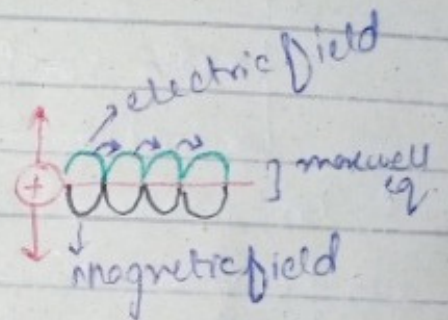 electric field
+
} maxwell
eq.
magnetic field